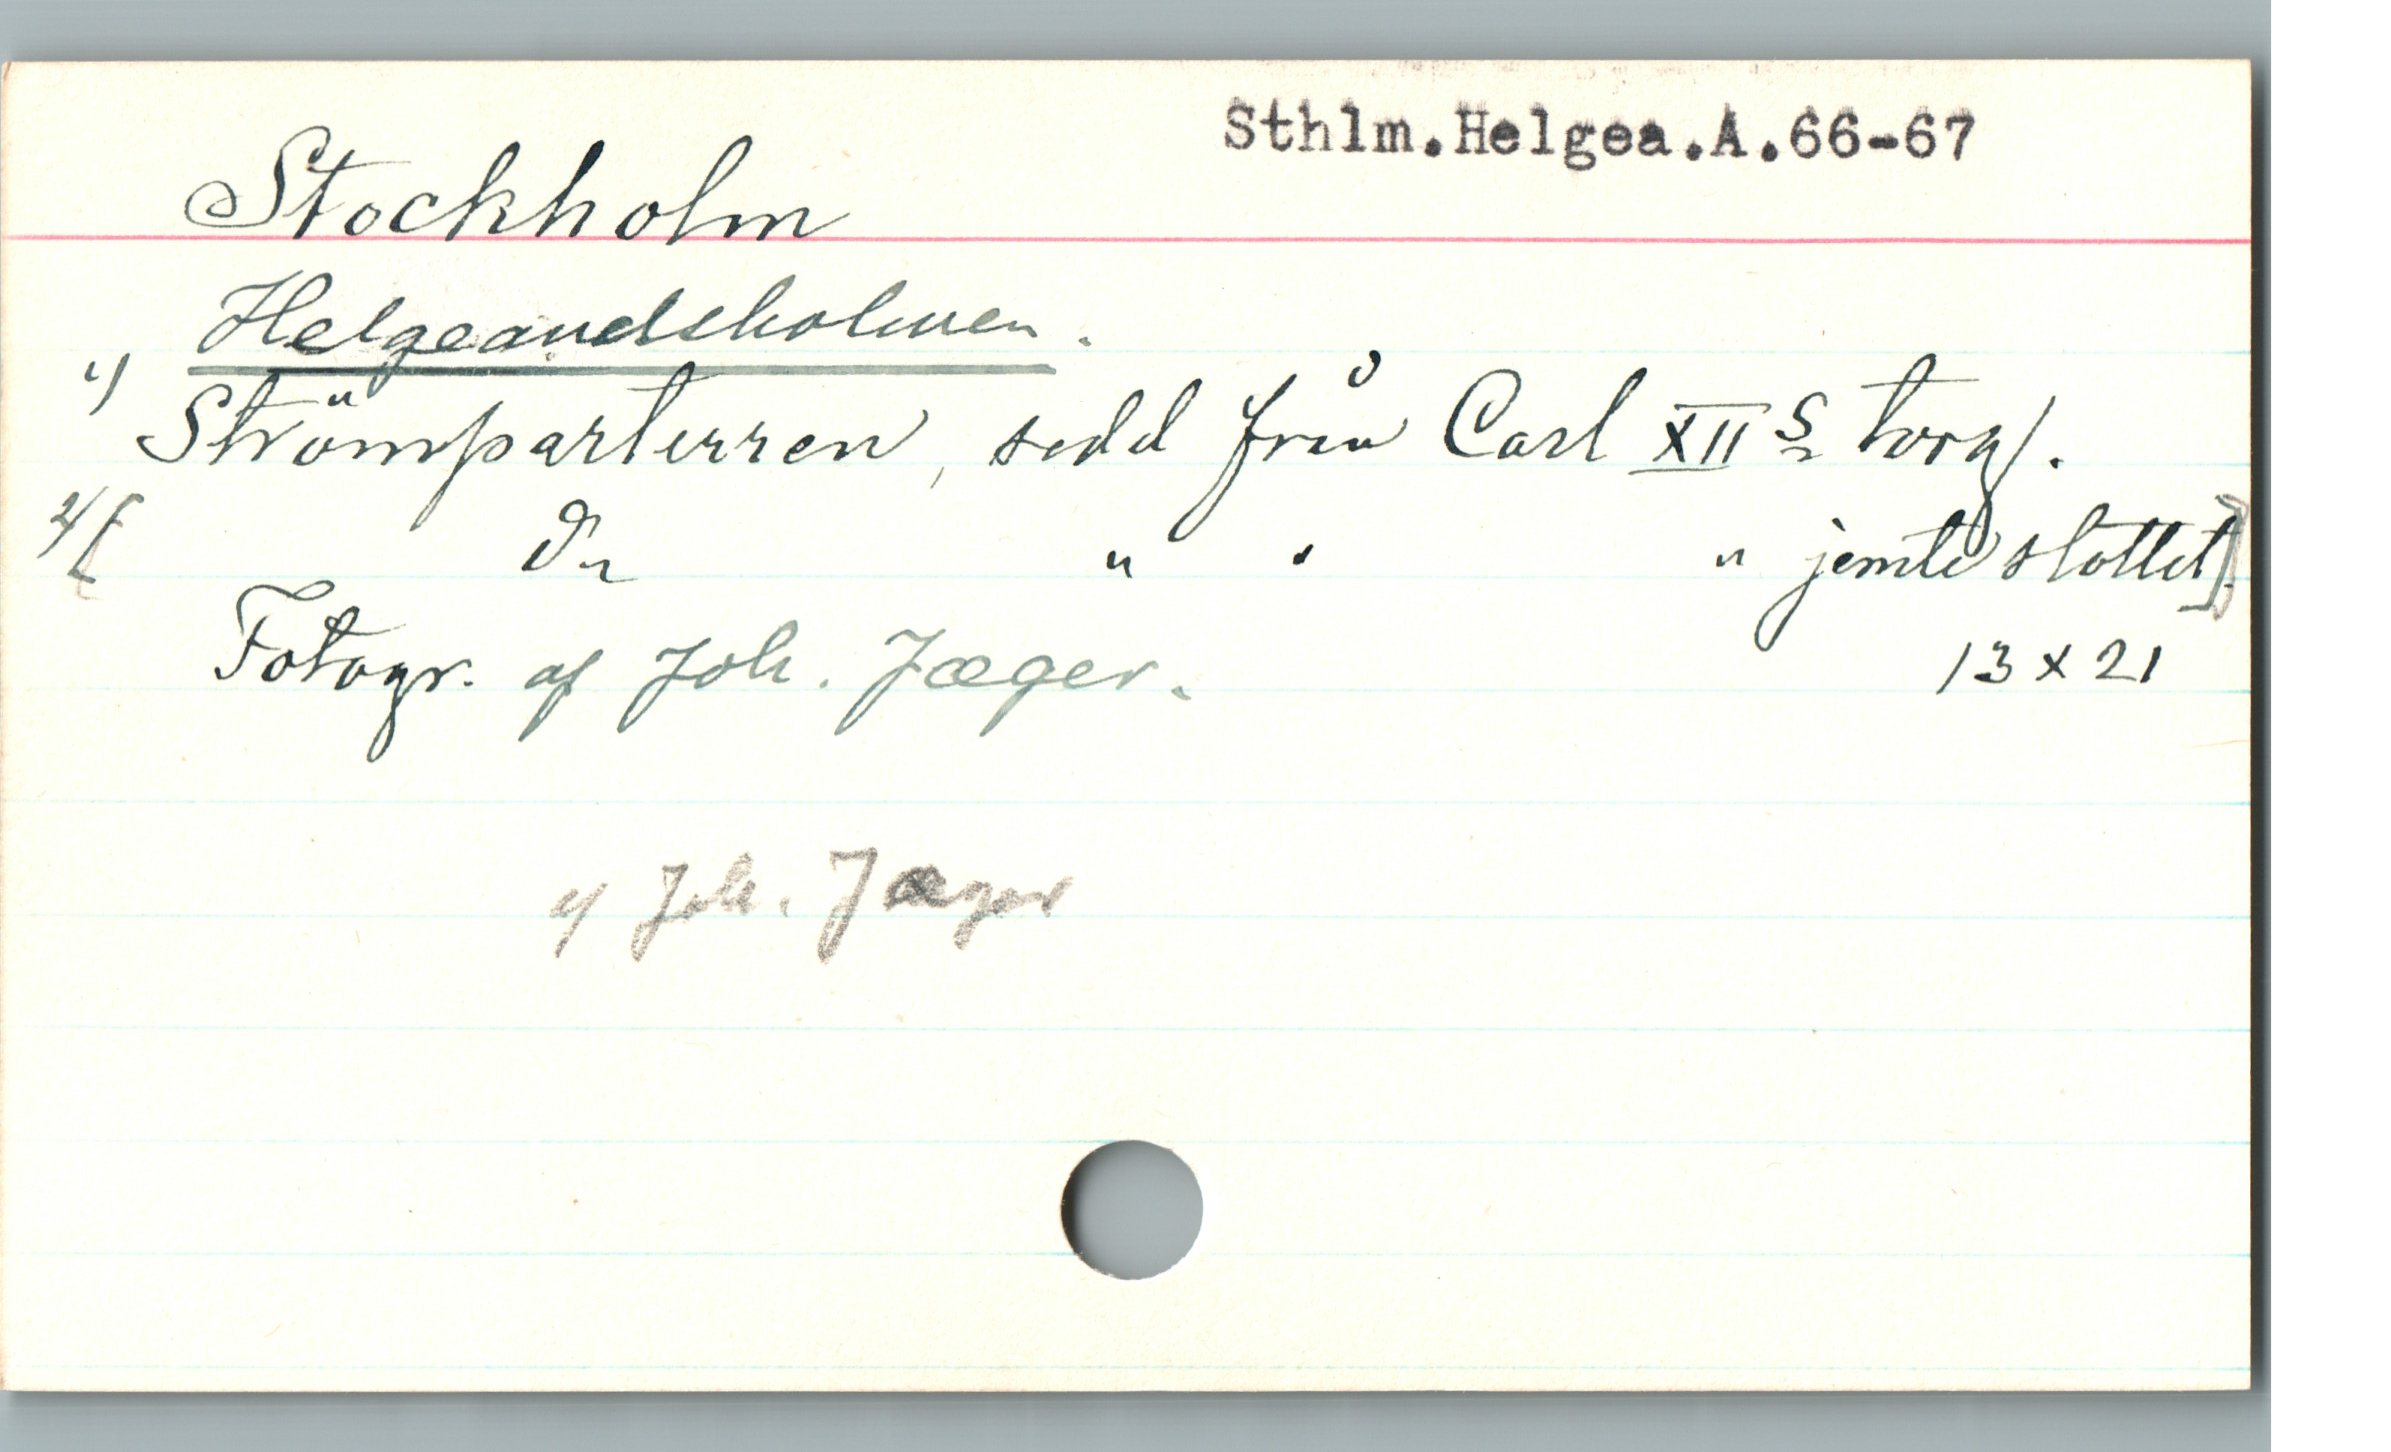 Sthlm.Helgea.A.66-67
Stockholm
Helgeandsholmen.
1) Strömparterren, sedd från Carl XIIs torg.
2) [ Do " " " jemte slottet].
Fotogr. af Joh. Jæger.
13 x 21
af Joh. Jæger